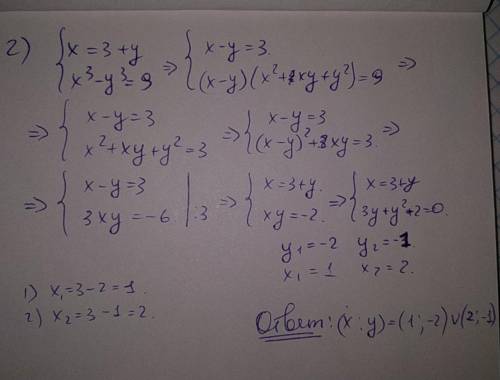 2) { x = 3 + y ; x³ - y³ = 9 ⇒ { x - y = 3. ; (x - y)(x² + xy + y²) = 9 ⇒
⇒ { x - y = 3 ; x² + xy + y² = 3 ⇒ { x - y = 3 ; (x - y)² + 3xy = 3. ⇒
⇒ { x - y = 3 ; 3xy = -6 | :3 ⇒ { x = 3 + y. ; xy = -2. ⇒ { x = 3 + y ; 3y + y² + 2 = 0.
y₁ = -2 y₂ = -1
x₁ = 1 x₂ = 2.
1) x₁ = 3 - 2 = 1.
2) x₂ = 3 - 1 = 2.
Ответ: (x ; y) = (1 ; -2) ∪ (2 ; -1)